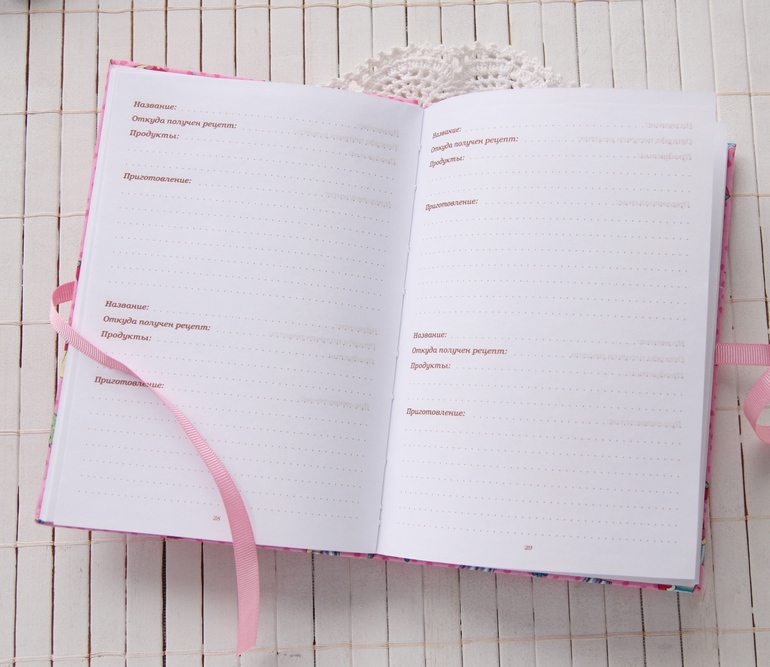 Название:
Откуда получен рецепт:
Продукты:
Приготовление:
Название:
Откуда получен рецепт:
Продукты:
Приготовление:
28
Название:
Откуда получен рецепт:
Продукты:
Приготовление:
Название:
Откуда получен рецепт:
Продукты:
Приготовление:
29